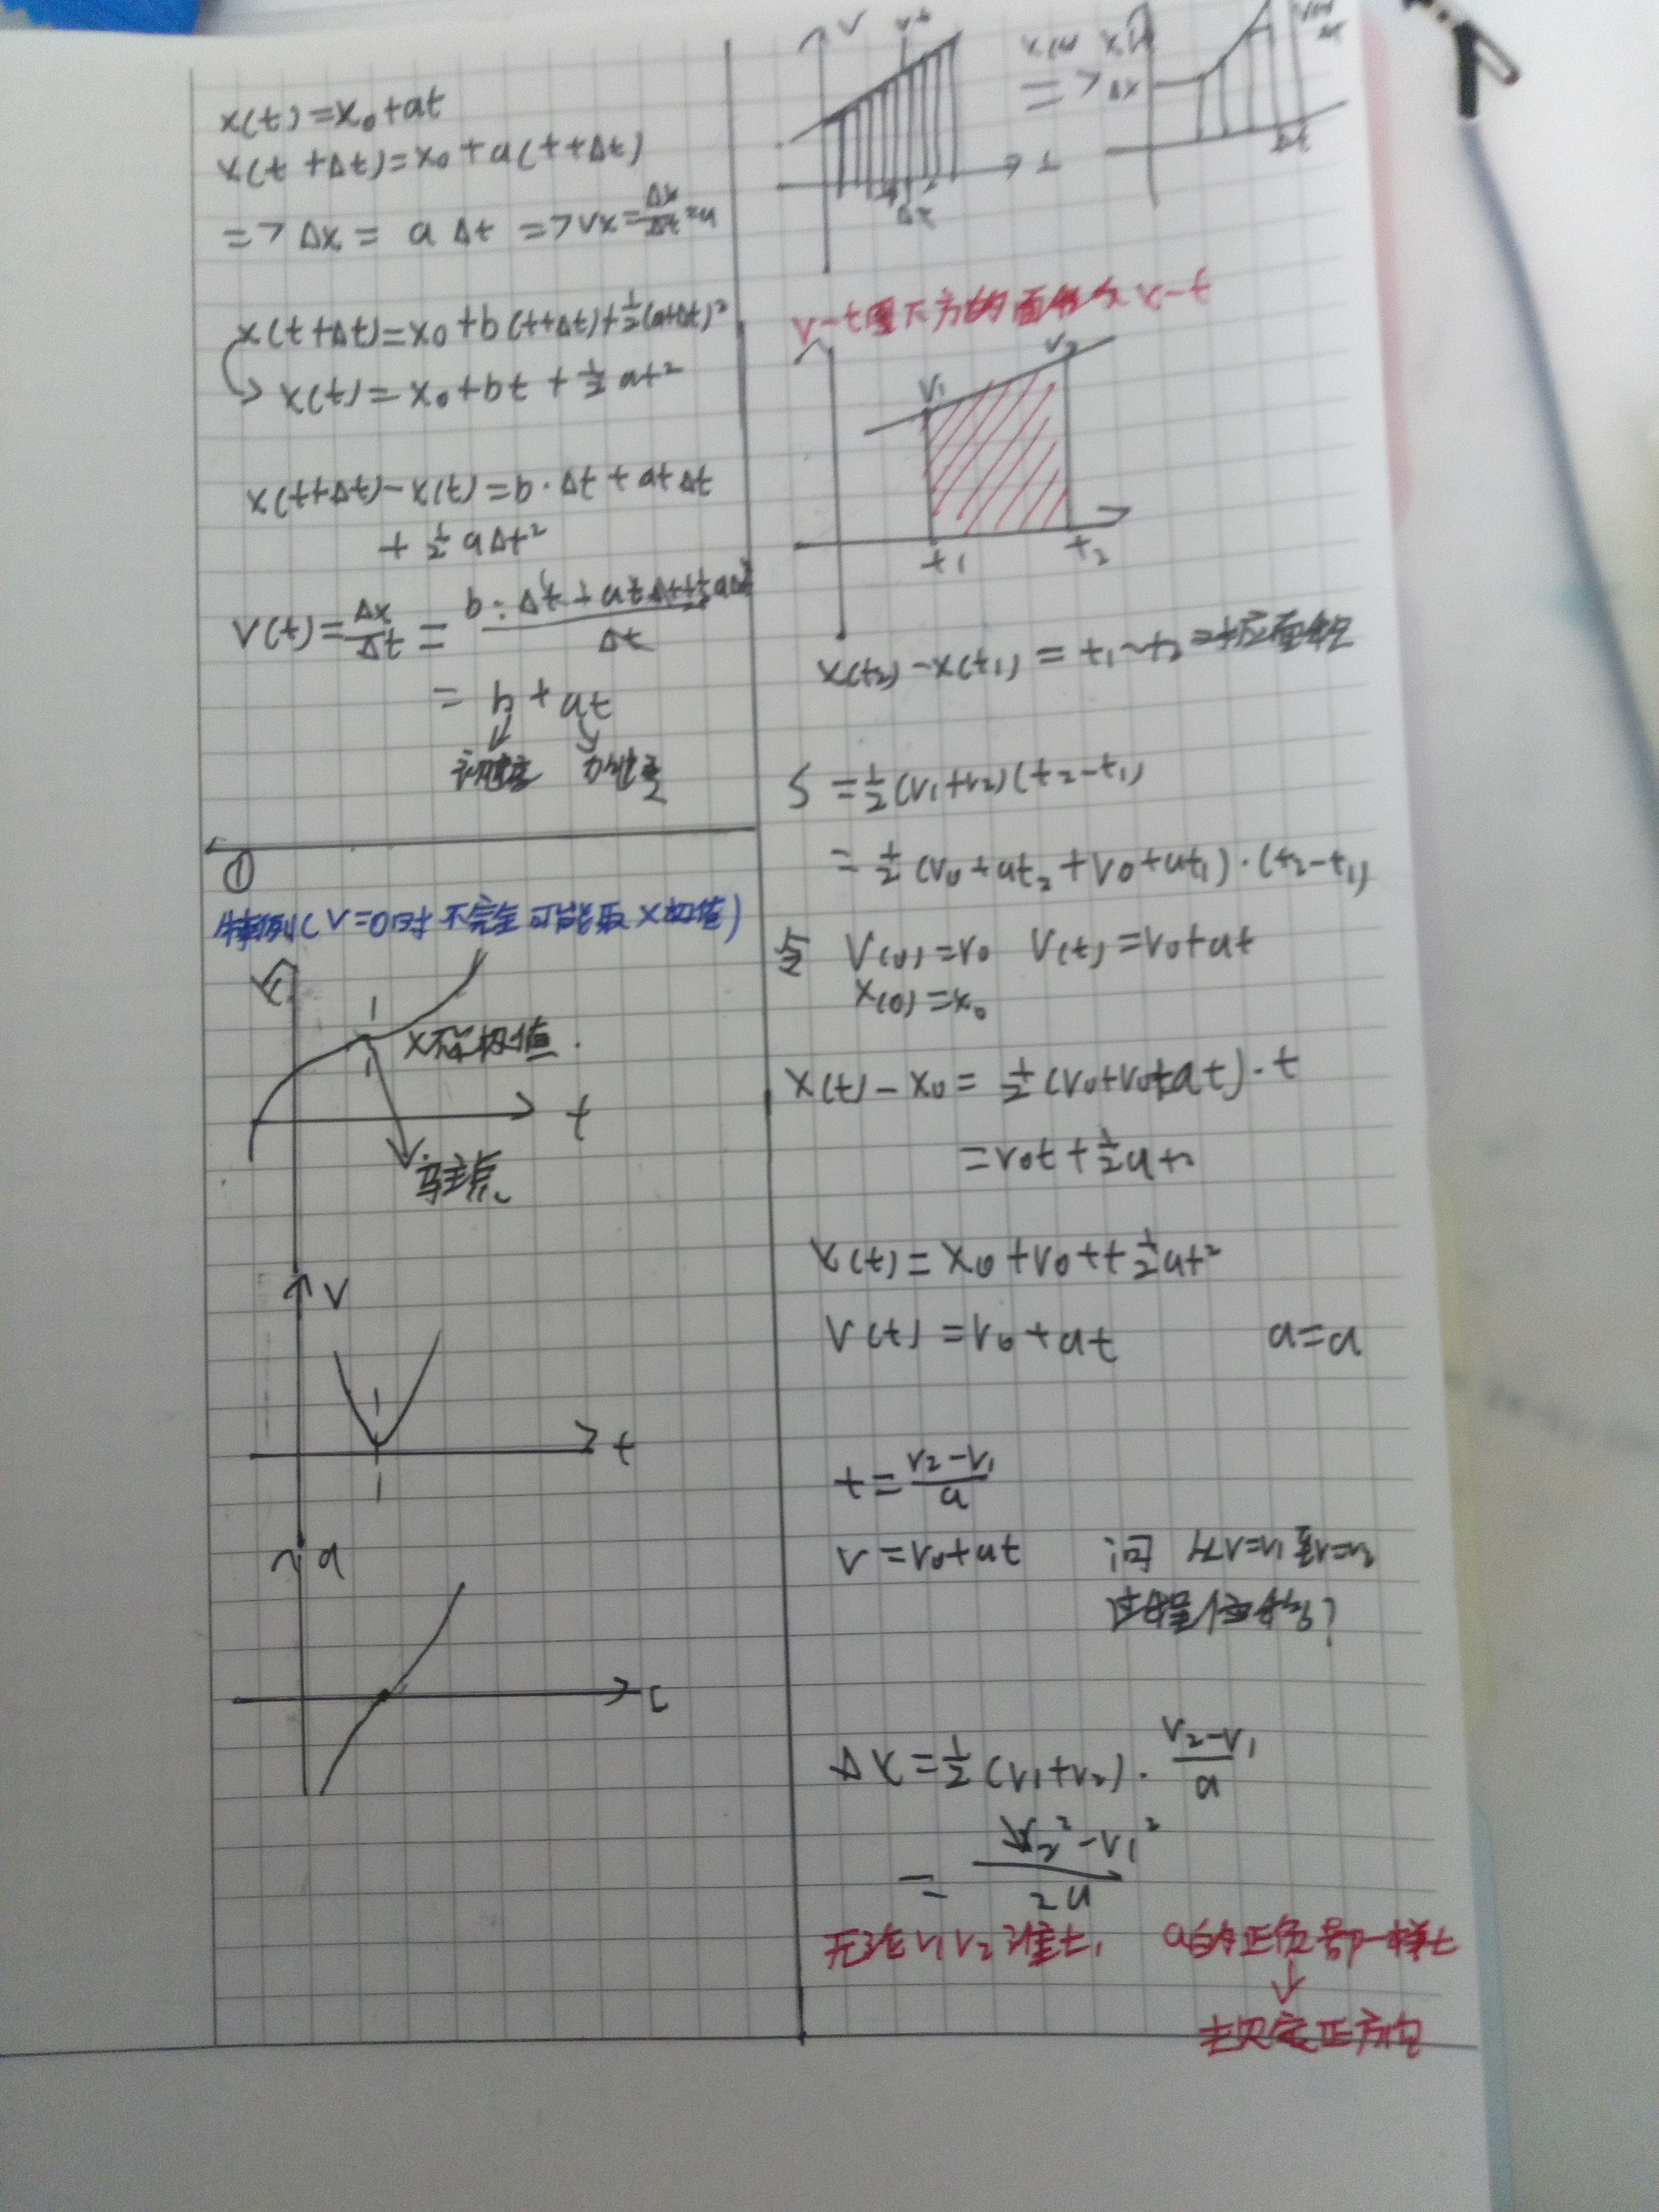 x(t)=x₀+at
x(t+Δt)=x₀+a(t+Δt)
=>Δx= aΔt =>vx=Δx/Δt=a
x(t+Δt)=x₀+b(t+Δt)+½(a+Δt)²
x(t)=x₀+bt+½at²
x(t+Δt)-x(t)=b·Δt+atΔt
+½aΔt²
V(t)=Δx/Δt=(b·Δt+atΔt+½aΔt²)/Δt
=b+at
初速度 加速度
①
特例(V=0时不完全可能取X极值)
X不是极值.
t
驻点
V
t
a
t
V
t
Δt
=>
Δx
Δt
v-t图下方的面积为x-t
V₁
V₂
t₁
t₂
x(t₂)-x(t₁)=t₁~t₂对应面积
S=½(v₁+v₂)(t₂-t₁)
=½(v₀+at₂+v₀+at₁)·(t₂-t₁)
令 V(0)=v₀ V(t)=v₀+at
x(0)=x₀
x(t)-x₀=½(v₀+v₀+at)·t
=v₀t+½at²
x(t)=x₀+v₀t+½at²
V(t)=v₀+at a=a
t=(v₂-v₁)/a
v=v₀+at 问 从v=v₁至v=v₂
过程位移?
Δx=½(v₁+v₂)·(v₂-v₁)/a
=(v₂²-v₁²)/2a
无论v₁v₂谁大, a的正负都一样
规定正方向